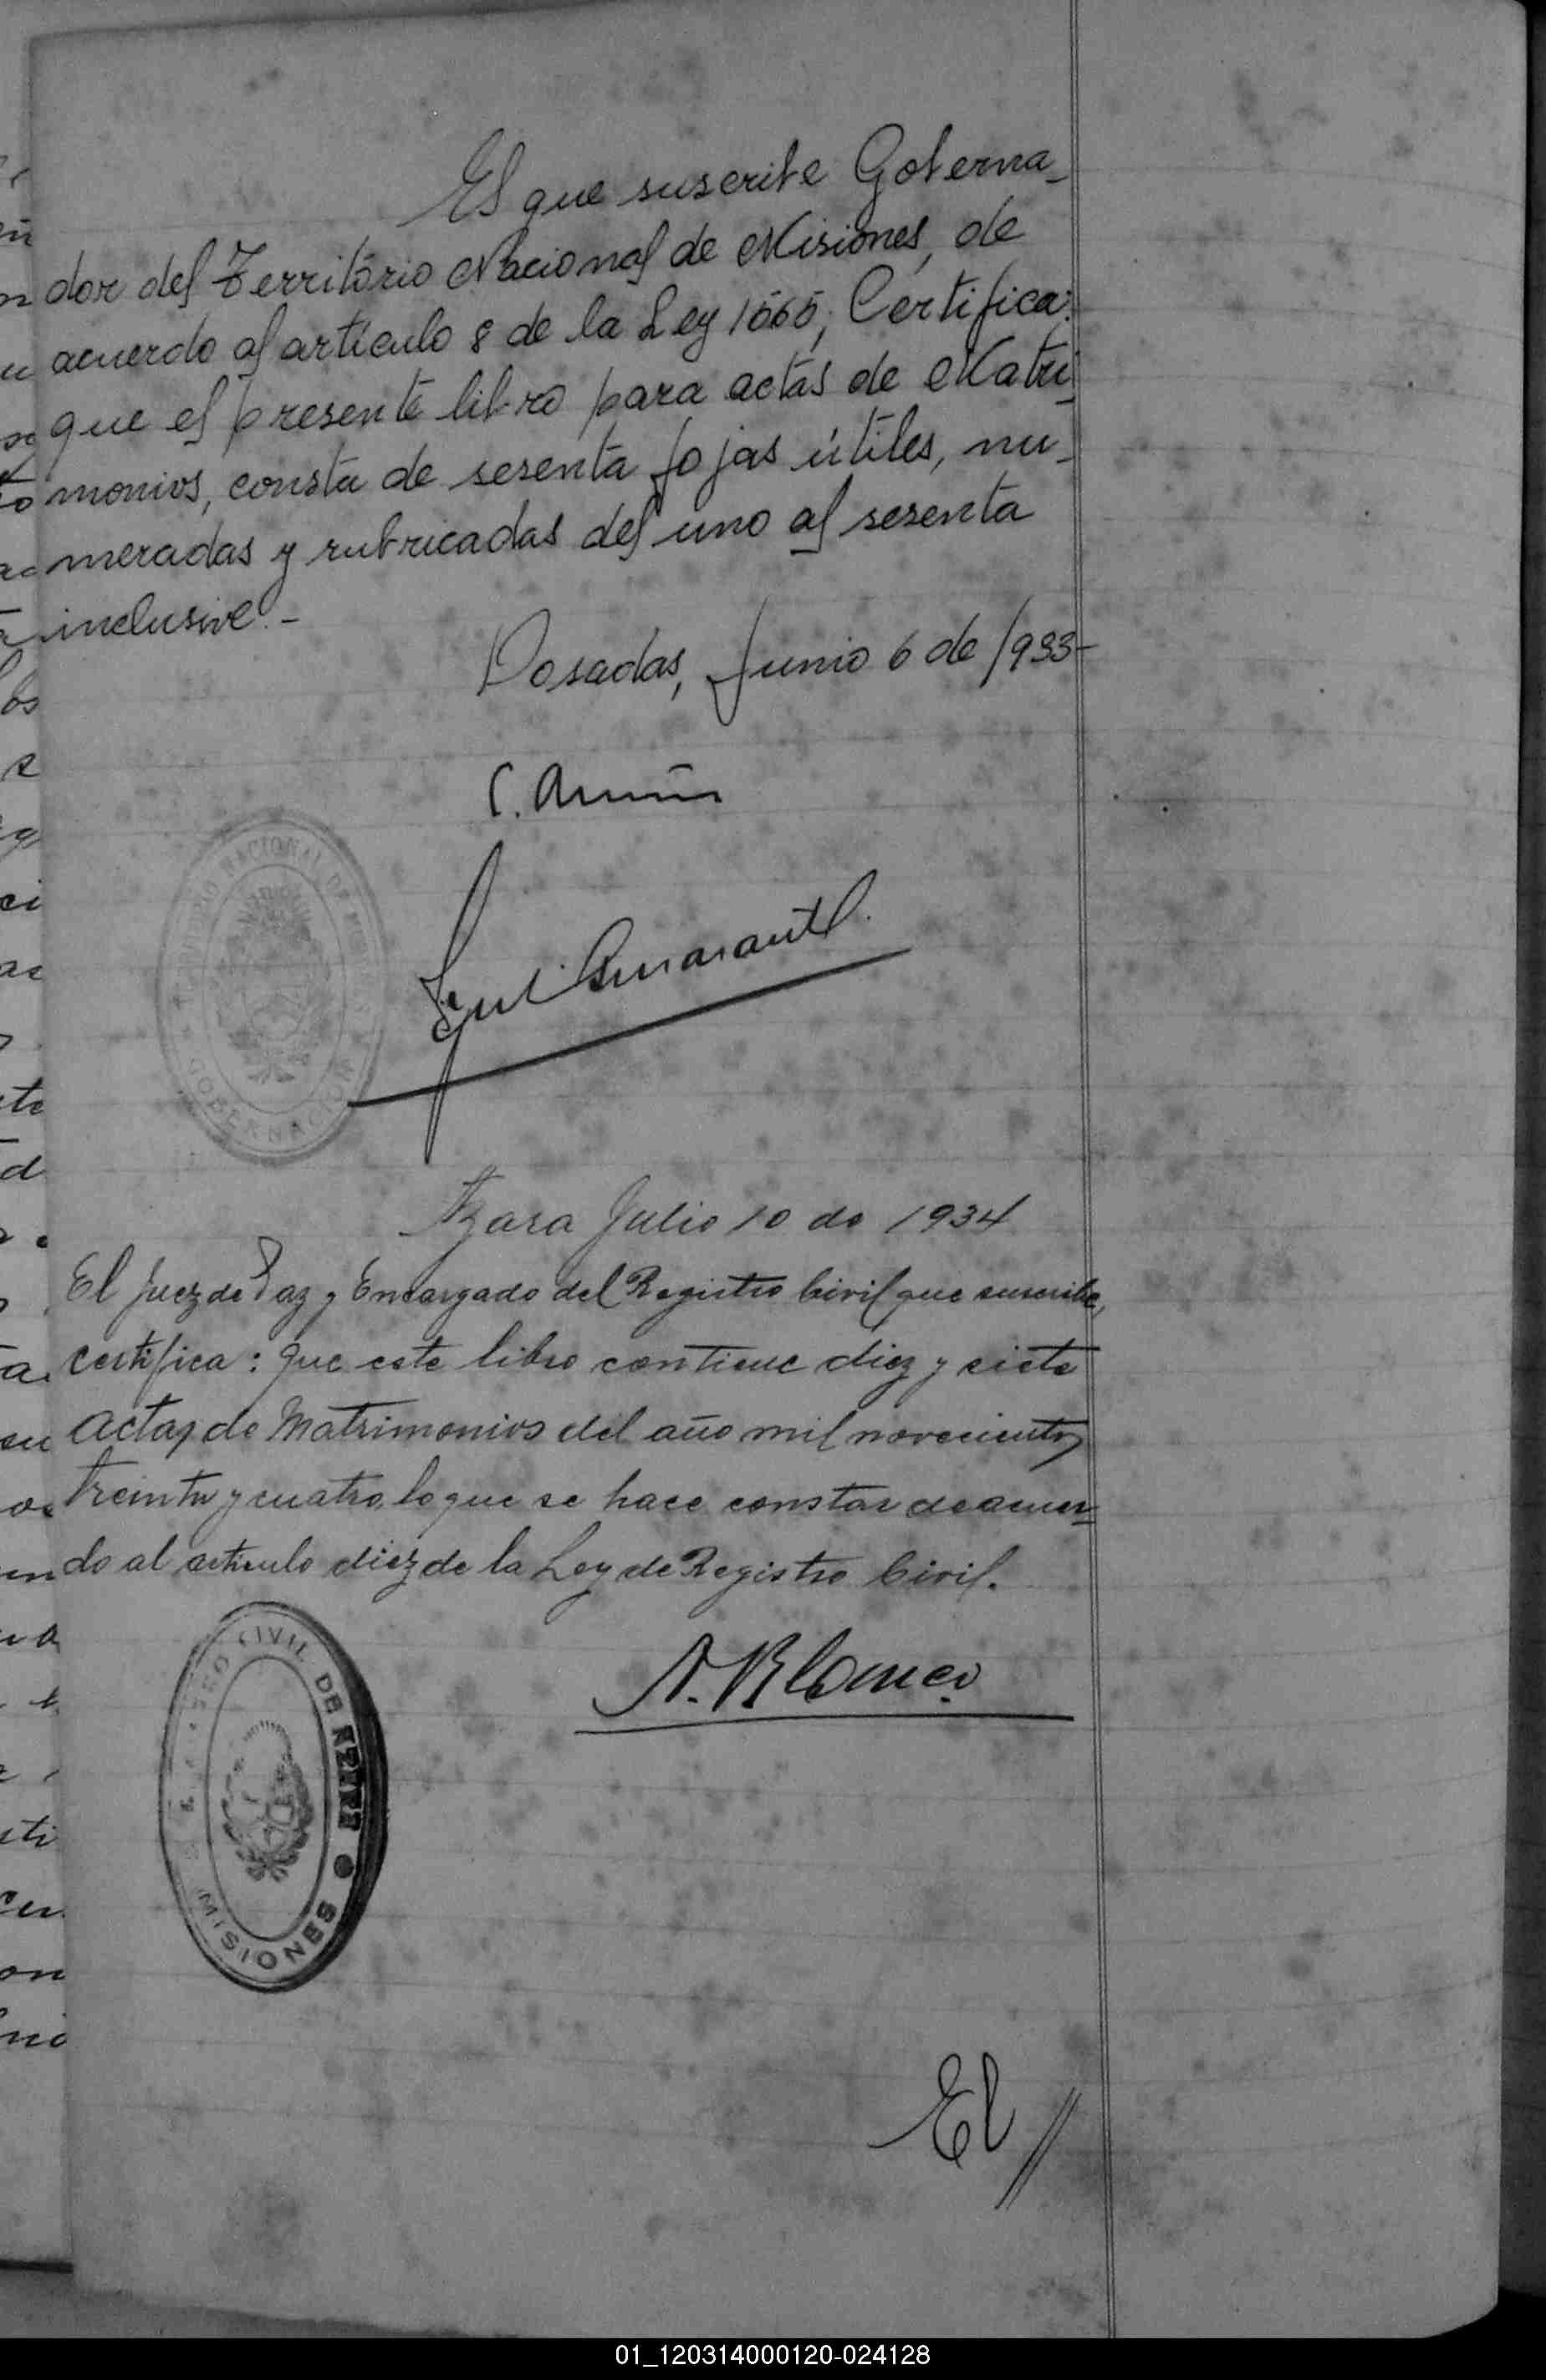 El que suscribe Goberna-
dor del Territorio Nacional de Misiones, de
acuerdo al artículo 8 de la Ley 1565, Certifica:
que el presente libro para actas de Matri-
monios, consta de sesenta fojas útiles, nu-
meradas y rubricadas del uno al sesenta
inclusive.-
Posadas, Junio 6 de 1933-
C.
NACIONAL DE
GOBERNACION
Azara Julio 10 de 1934
El Juez de Paz y Encargado del Registro Civil que suscribe,
certifica: que este libro contiene diez y siete
actas de Matrimonios del año mil novecientos
treinta y cuatro, lo que se hace constar de acuer-
do al articulo diez de la Ley de Registro Civil.
A. Blanco
CIVIL DE AZARA
MISIONES
El //
01_120314000120-024128